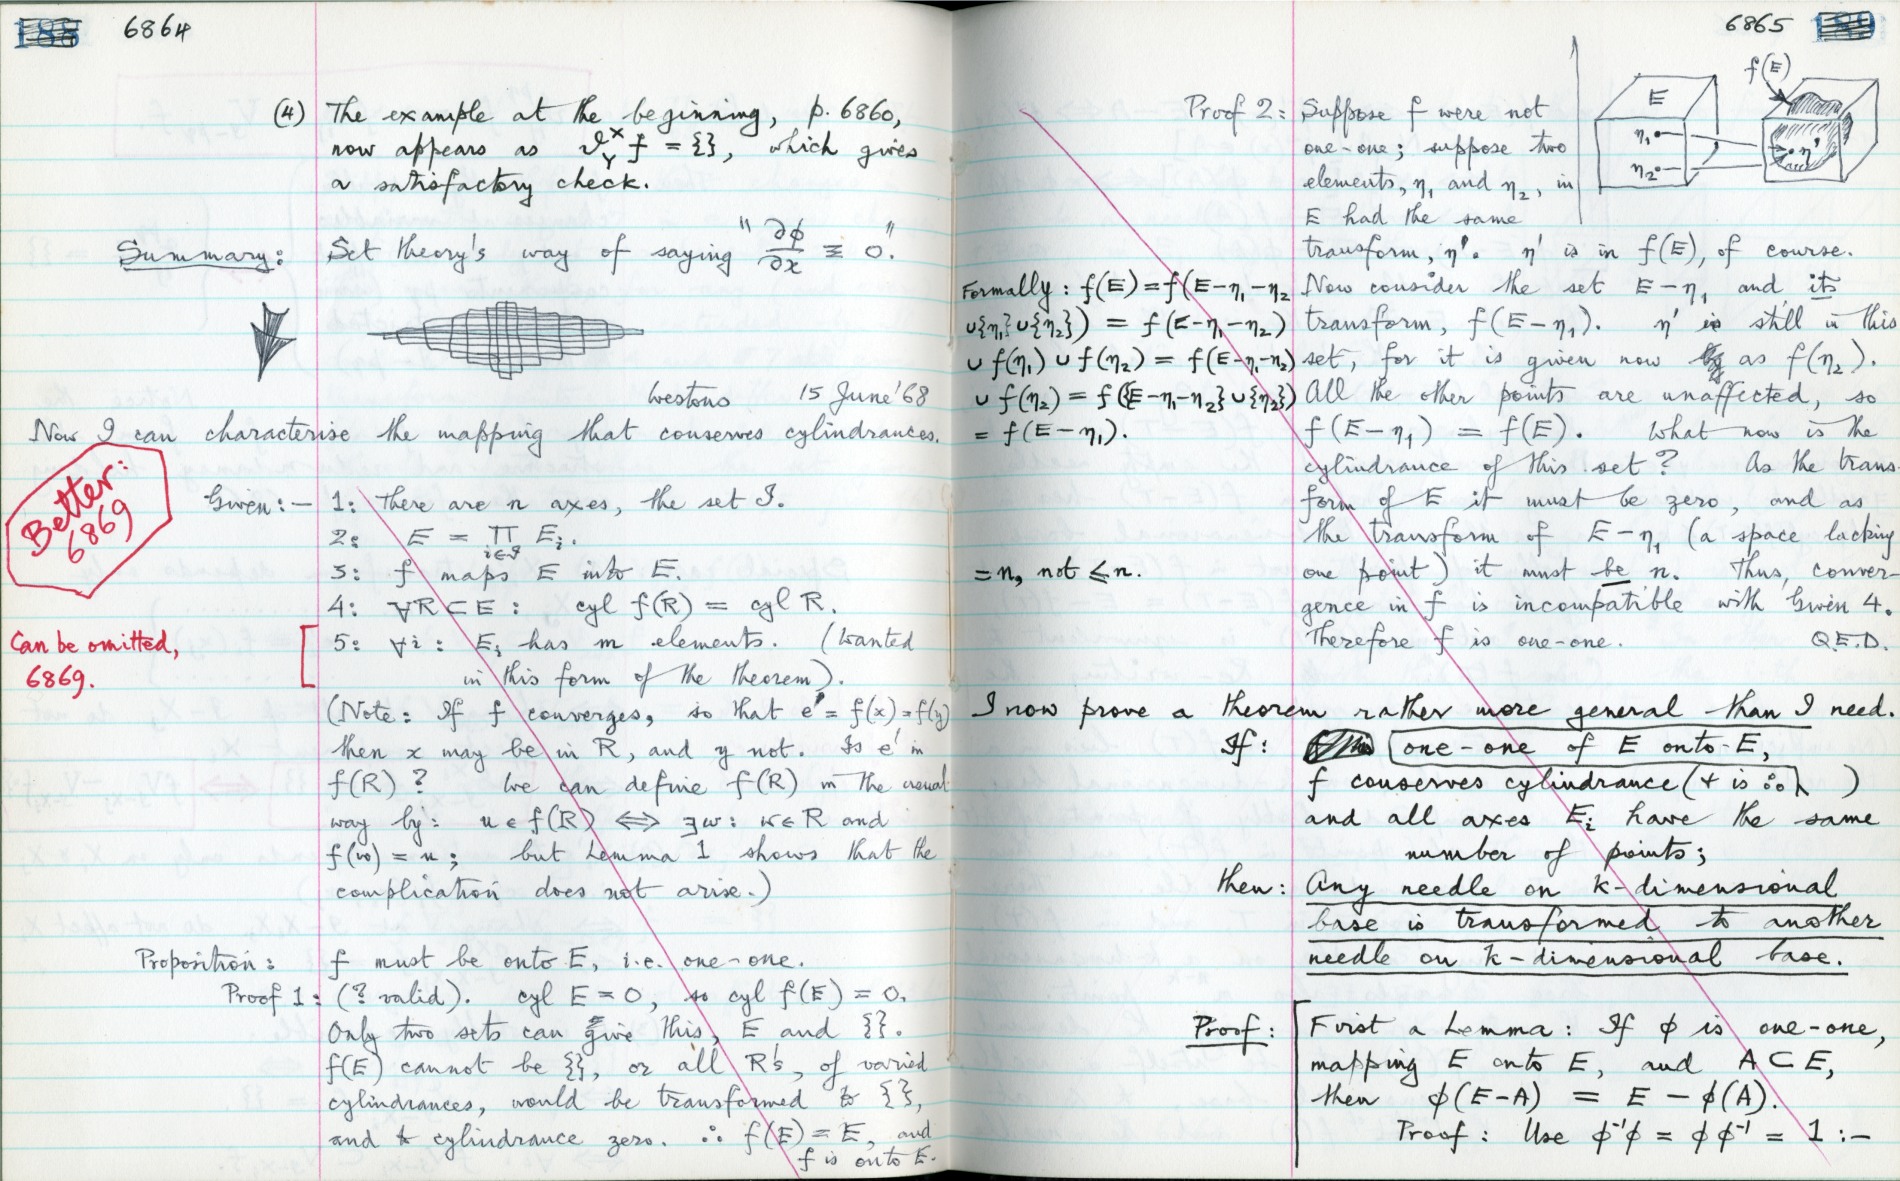 6864
(4) The example at the beginning, p. 6860,
now appears as 𝜗ˣ_Y f = {}, which gives
a satisfactory check.
Summary: Set theory's way of saying "∂φ/∂x ≡ 0".
Westons 15 June '68
Now I can characterise the mapping that conserves cylindrances.
Better: 6869
Given:— 1: There are n axes, the set I.
2: E = ∏_{i∈I} E_i.
3: f maps E into E.
4: ∀R⊂E: cyl f(R) = cyl R.
Can be omitted, 6869.
5: ∀i: E_i has m elements. (Wanted
in this form of the theorem).
(Note: If f converges, so that e' = f(x) = f(y)
then x may be in R, and y not. Is e' in
f(R)? We can define f(R) in the usual
way by: u ∈ f(R) ⟺ ∃w: w∈R and
f(w) = u; but Lemma 1 shows that the
complication does not arise.)
Proposition: f must be onto E, i.e. one-one.
Proof 1: (? valid). cyl E = 0, so cyl f(E) = 0.
Only two sets can give this, E and {}.
f(E) cannot be {}, or all R's, of varied
cylindrances, would be transformed to {},
and to cylindrance zero. ∴ f(E) = E, and
f is onto E.
6865
Proof 2: Suppose f were not
one-one; suppose two
elements, η₁ and η₂, in
E had the same
transform, η'. η' is in f(E), of course.
E
η₁
η₂
f(E)
η'
Now consider the set E−η₁ and its
transform, f(E−η₁). η' is still in this
set, for it is given now as f(η₂).
All the other points are unaffected, so
f(E−η₁) = f(E). What now is the
cylindrance of this set? As the trans-
form of E it must be zero, and as
the transform of E−η₁ (a space lacking
one point) it must be n. Thus, conver-
gence in f is incompatible with Given 4.
Therefore f is one-one. Q.E.D.
Formally: f(E) = f(E−η₁−η₂
∪{η₁}∪{η₂}) = f(E−η₁−η₂)
∪ f(η₁) ∪ f(η₂) = f(E−η₁−η₂)
∪ f(η₂) = f({E−η₁−η₂}∪{η₂})
= f(E−η₁).
= n, not ≤ n.
I now prove a theorem rather more general than I need.
If: one-one of E onto E,
f conserves cylindrance (+ is ∴ )
and all axes E_i have the same
number of points;
then: Any needle on k-dimensional
base is transformed to another
needle on k-dimensional base.
Proof: First a Lemma: If φ is one-one,
mapping E onto E, and A⊂E,
then φ(E−A) = E − φ(A).
Proof: Use φ⁻¹φ = φφ⁻¹ = 1 :—